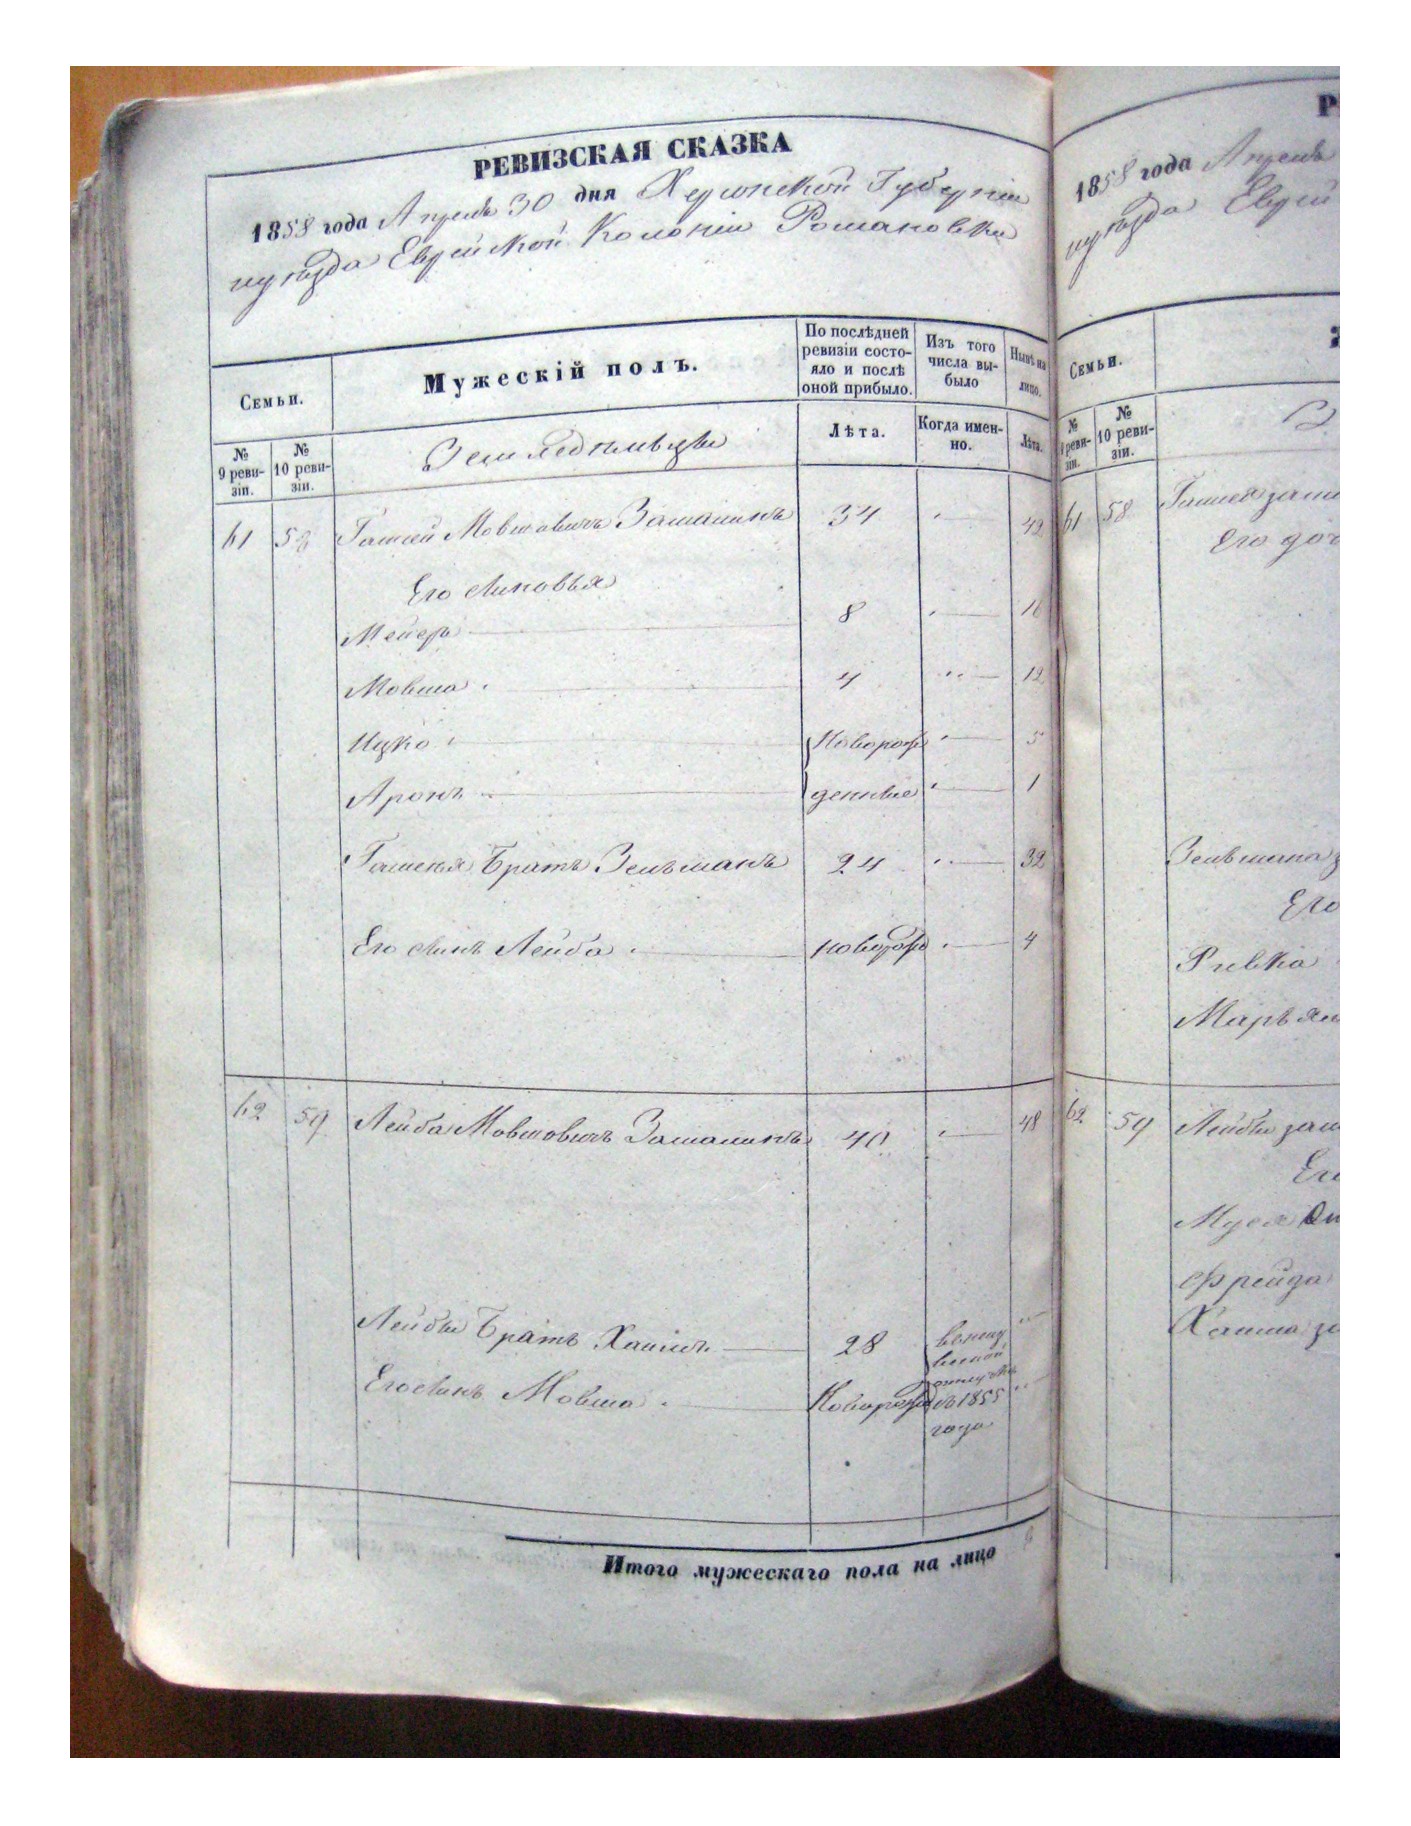 РЕВИЗСКАЯ СКАЗКА
1858 года Апреля 30 дня Херсонской Губерніи
и уѣзда Еврейской Колоніи Романовки
Семьи.
Мужескій полъ.
По послѣдней ревизіи состояло и послѣ оной прибыло.
Изъ того числа выбыло
Нынѣ на лицо.
№ 9 ревизіи.
№ 10 ревизіи.
Земледѣльцы
Лѣта.
Когда именно.
Лѣта.
61 58 Мовшовичъ 34 42
Его сыновья
Мейеръ 8 16
Мовша 4 12
Ицко Новорож 5
Аронъ денные 1
Братъ Зельманъ 24 32
Его сынъ Лейба новорож 4
62 59 Лейба Мовшовичъ 40 48
Лейбы Братъ Хаимъ 28
Его сынъ Мовша Новорож въ 1855
года
Итого мужескаго пола на лицо
1858 года Апреля
и уѣзда Еврей
Семьи.
№ 9 ревизіи.
№ 10 ревизіи.
61 58
Его доч
Зельмана
Его
Ривка
62 59 Лейбы
Фрейда